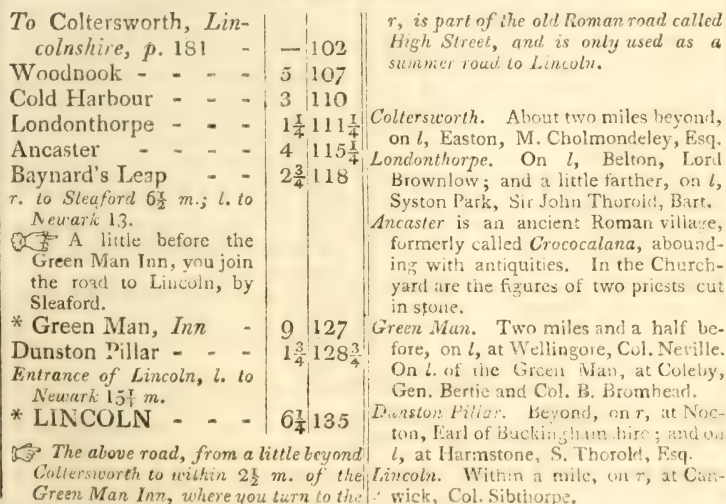 To Coltersworth, Lin-
colnshire, p. 181 - — 102
Woodnook - - - - 5 107
Cold Harbour - - - 3 110
Londonthorpe - - - 1¼ 111¼
Ancaster - - - - 4 115¼
Baynard's Leap - - 2¾ 118
r. to Sleaford 6½ m.; l. to
Newark 13.
☞ A little before the
Green Man Inn, you join
the road to Lincoln, by
Sleaford.
* Green Man, Inn - 9 127
Dunston Pillar - - - 1¾ 128¾
Entrance of Lincoln, l. to
Newark 15¼ m.
* LINCOLN - - - 6¼ 135
☞ The above road, from a little beyond
Coltersworth to within 2½ m. of the
Green Man Inn, where you turn to the
r, is part of the old Roman road called
High Street, and is only used as a
summer road to Lincoln.
Coltersworth. About two miles beyond,
on l, Easton, M. Cholmondeley, Esq.
Londonthorpe. On l, Belton, Lord
Brownlow; and a little farther, on l,
Syston Park, Sir John Thorold, Bart.
Ancaster is an ancient Roman village,
formerly called Crococalana, abound-
ing with antiquities. In the Church-
yard are the figures of two priests cut
in stone.
Green Man. Two miles and a half be-
fore, on l, at Wellingore, Col. Neville.
On l. of the Green Man, at Coleby,
Gen. Bertie and Col. B. Bromhead.
Dunston Pillar. Beyond, on r, at Noc-
ton, Earl of Buckinghamshire; and on
l, at Harmstone, S. Thorold, Esq.
Lincoln. Within a mile, on r, at Can-
wick, Col. Sibthorpe.